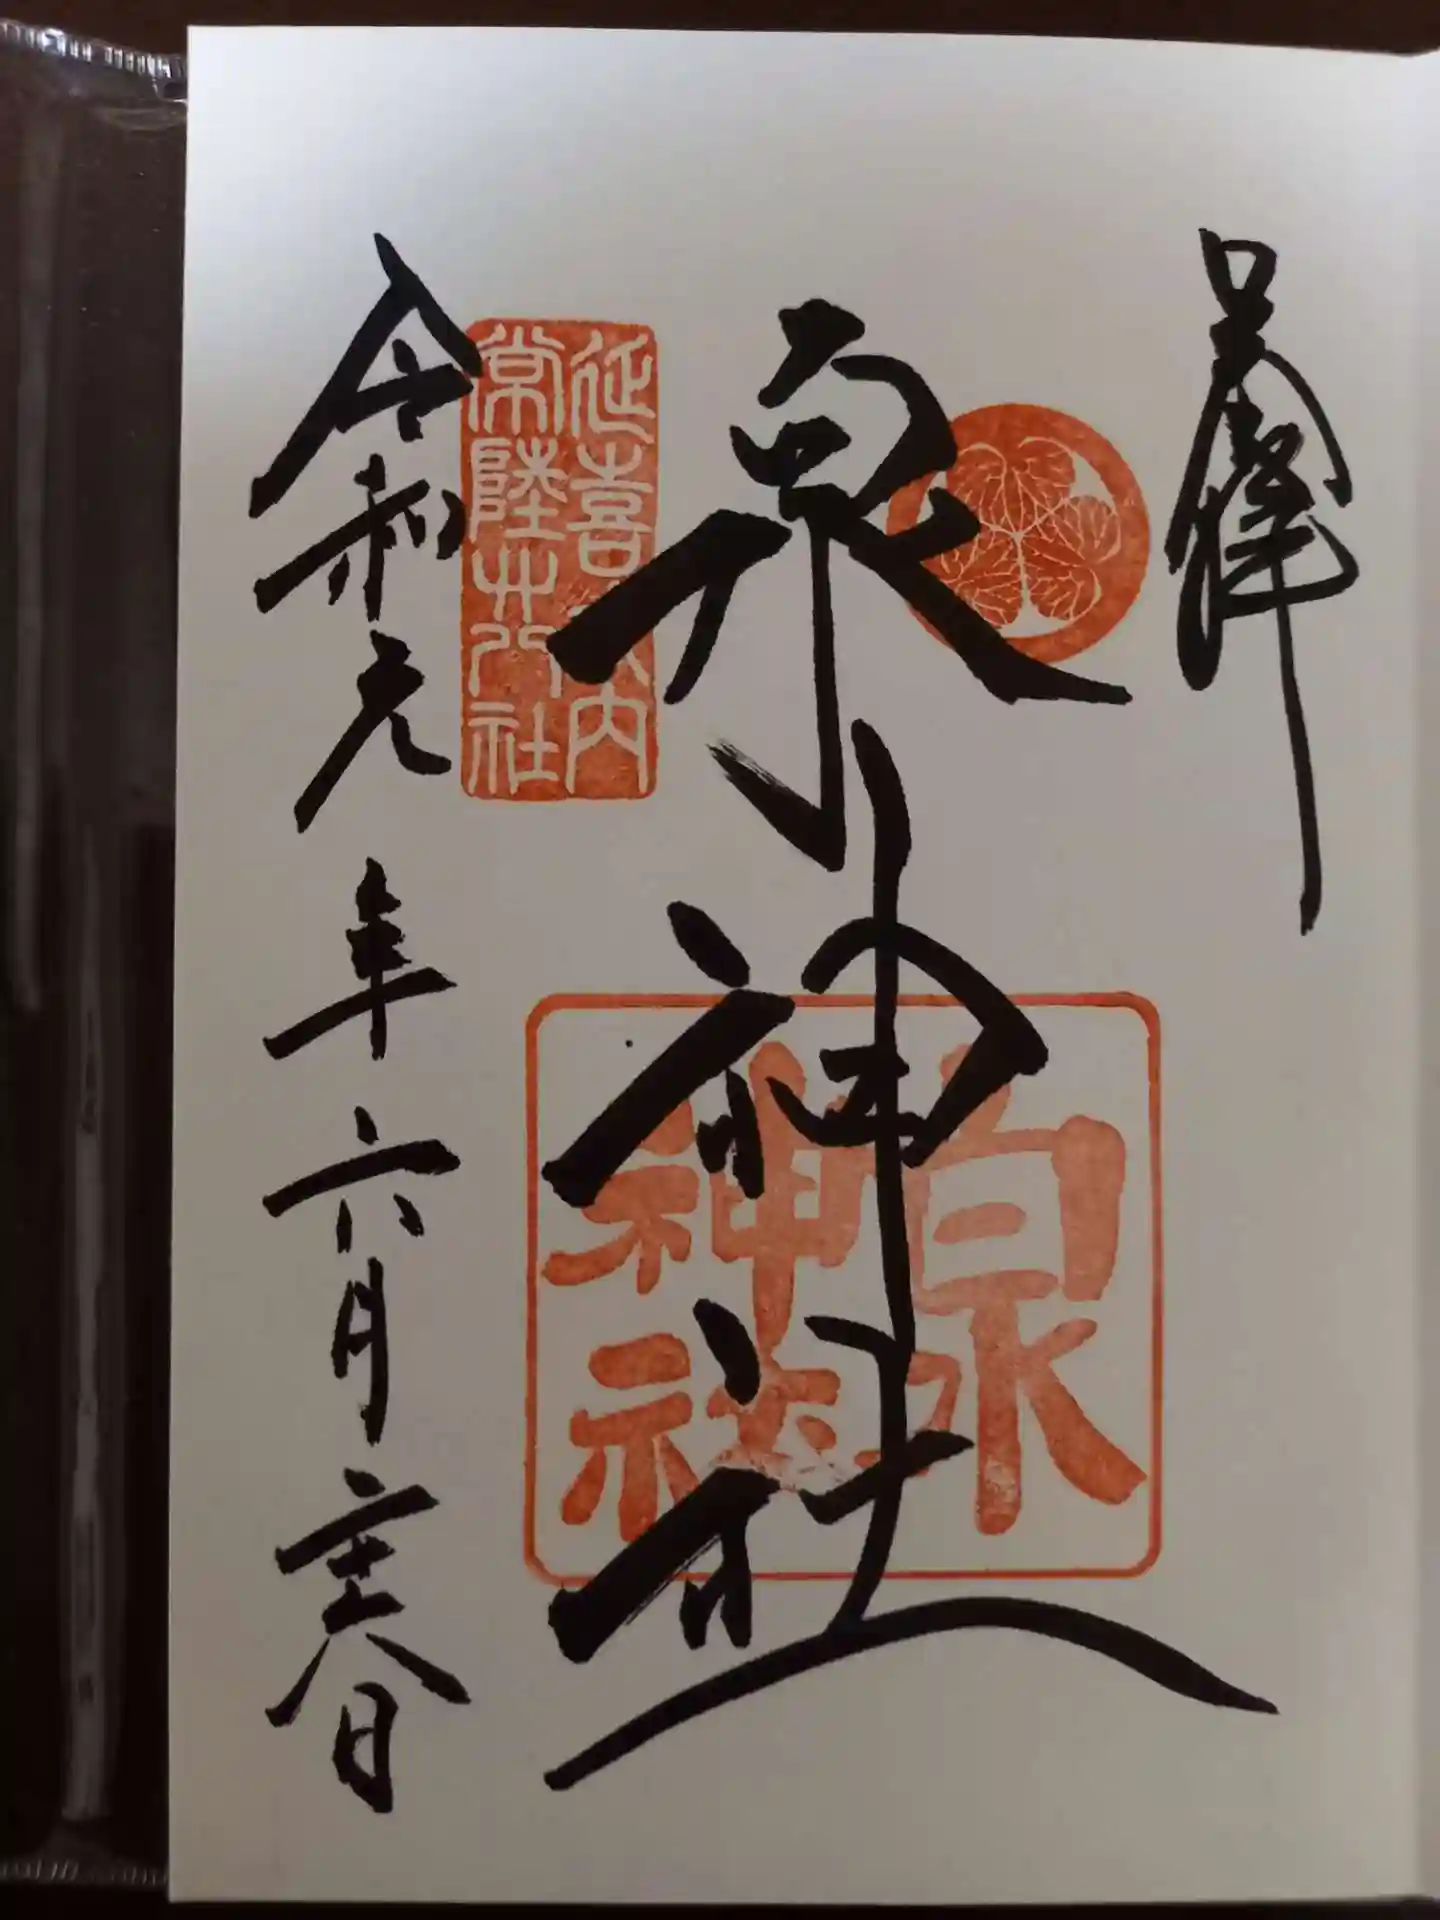 奉拝
泉神社
延喜式内
常陸廿八社
泉
神社
令和元年六月二十六日